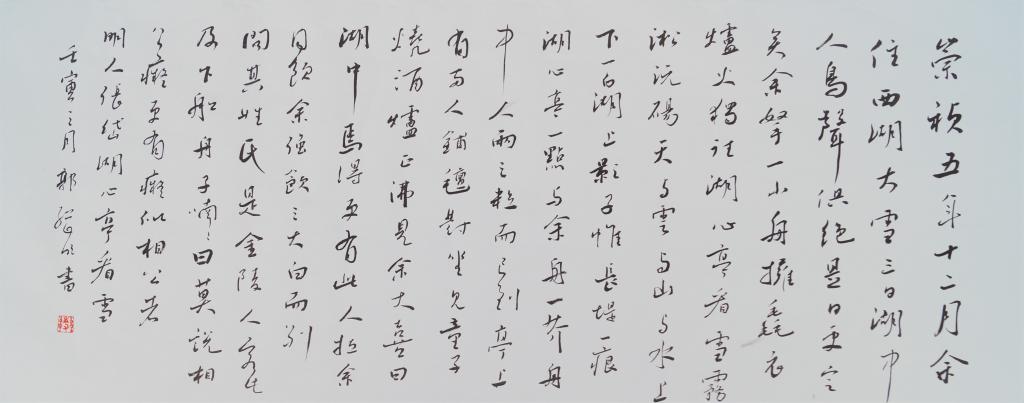 崇禎五年十二月余
住西湖大雪三日湖中
人鳥聲俱絕是日更定
矣余拏一小舟擁毳衣
爐火獨往湖心亭看雪霧
淞沆碭天与雲与山与水上
下一白湖上影子惟長堤一痕
湖心亭一點与余舟一芥舟
中人兩三粒而已到亭上
有兩人鋪氈對坐童子
燒酒爐正沸見余大喜曰
湖中焉得更有此人拉余
同飲余強飲三大白而別
問其姓氏是金陵人客此
及下船舟子喃喃曰莫說相
公癡更有癡似相公者
明人張岱湖心亭看雪
壬寅三月郭書